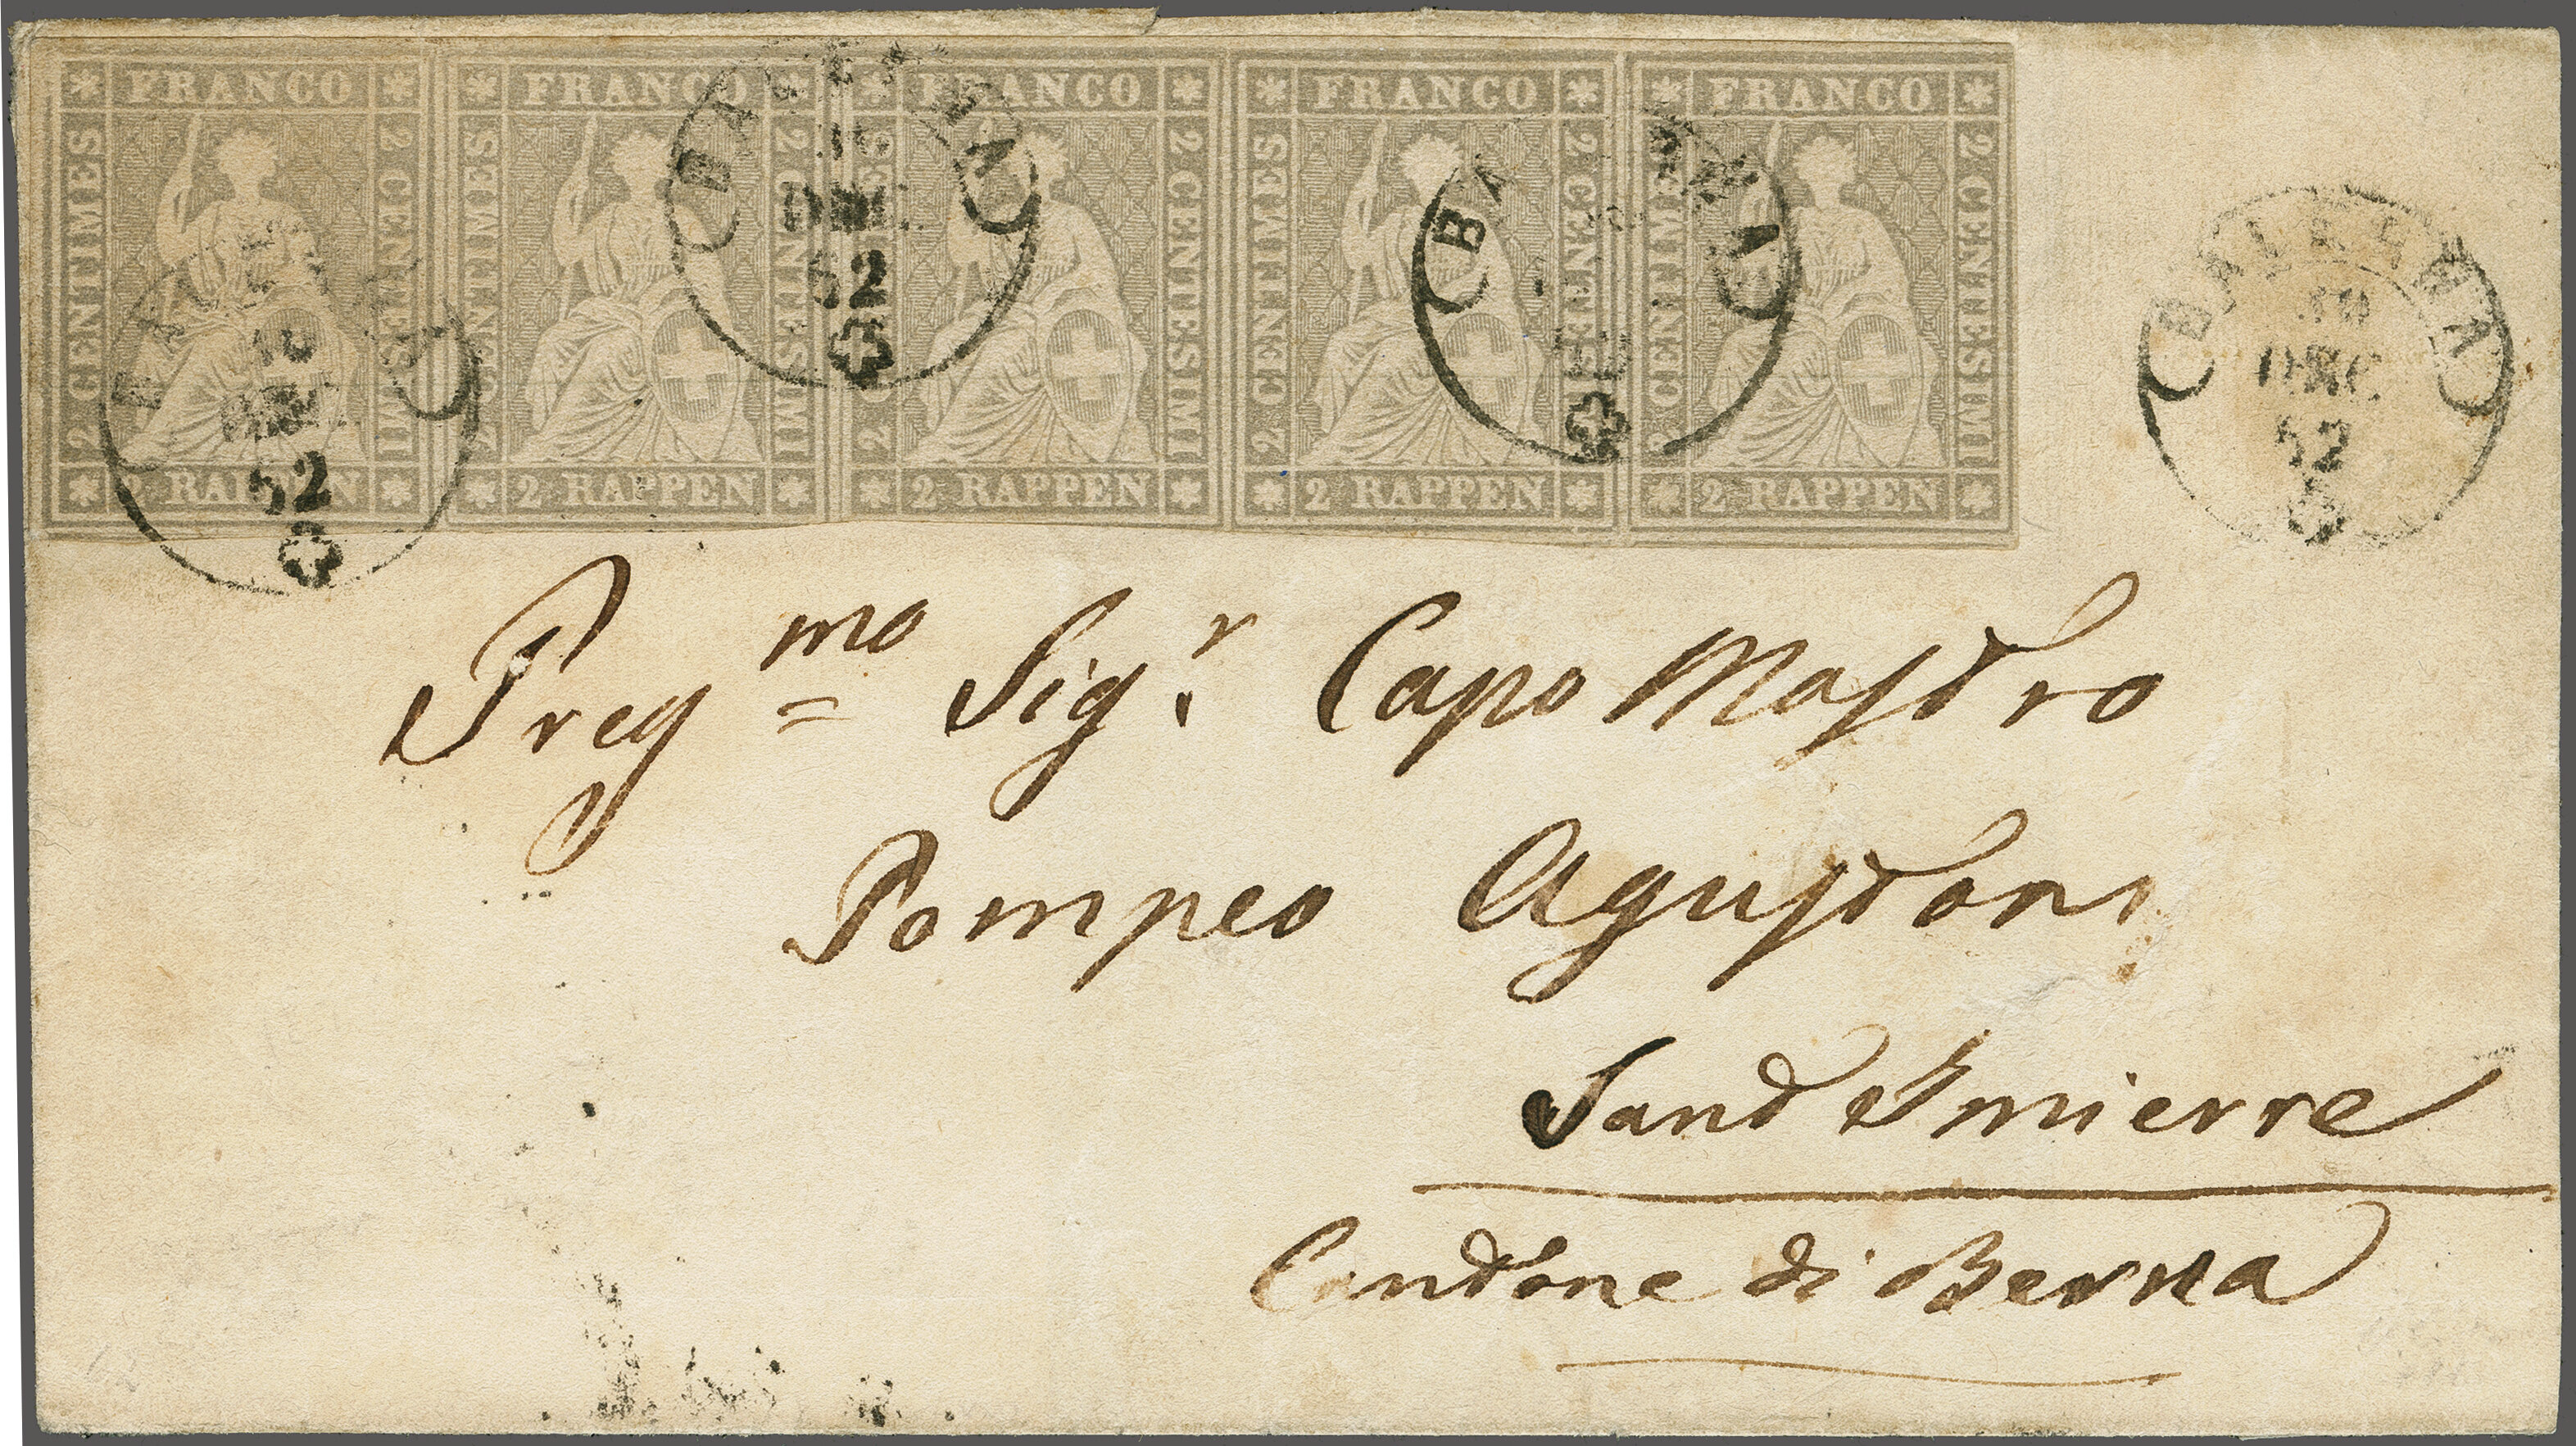 FRANCO FRANCO FRANCO FRANCO FRANCO
2 CENTIMES 2 CENTESIMI 2 CENTIMES 2 CENTESIMI 2 CENTIMES 2 CENTESIMI 2 CENTIMES 2 CENTESIMI 2 CENTIMES 2 CENTESIMI
2 RAPPEN 2 RAPPEN 2 RAPPEN 2 RAPPEN 2 RAPPEN
BALERNA
10
DEC
62
Preg mo Sig.r Capo Mastro
Pompeo Agustoni
Sant Imierre
Cantone di Berna